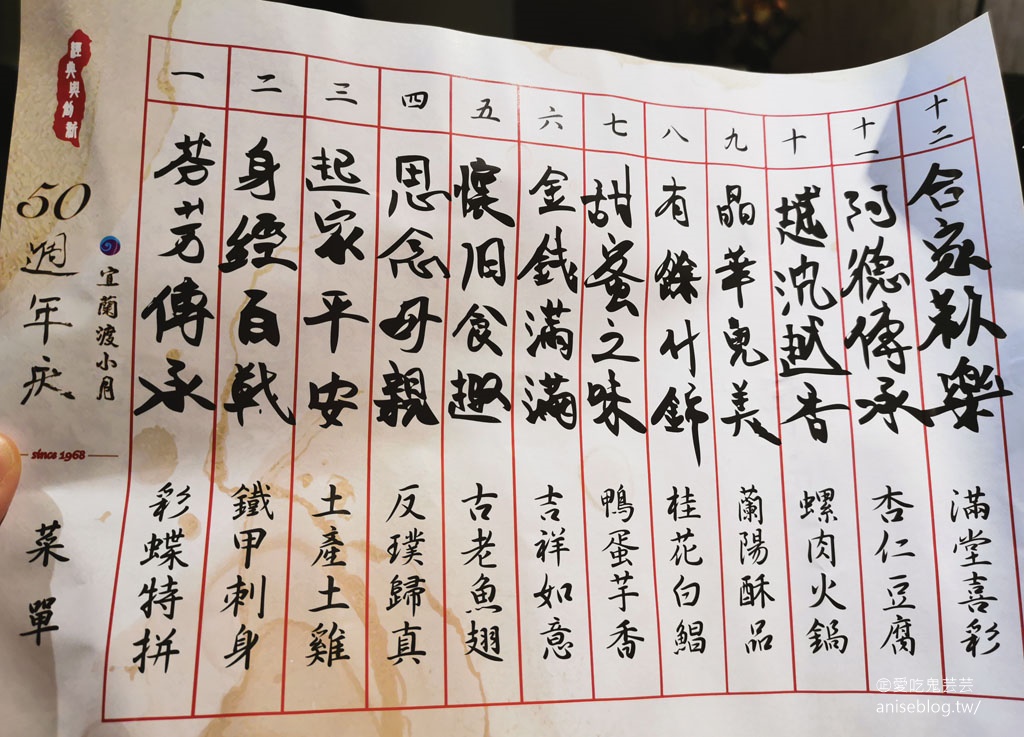 經典與創新
50
週年庆
宜蘭渡小月
since 1968
菜單
一
芬芳傳承
彩蝶特拼
二
身經百戰
鐵甲刺身
三
起家平安
土產土雞
四
思念母親
反璞歸真
五
懷旧食趣
古老魚翅
六
金錢滿滿
吉祥如意
七
甜蜜之味
鴨蛋芋香
八
有餘什錦
桂花白鯧
九
晶華皃美
蘭陽酥品
十
越沈越香
螺肉火鍋
十一
阿德傳承
杏仁豆腐
十二
合家歡樂
滿堂喜彩
愛吃鬼芸芸
aniseblog.tw/